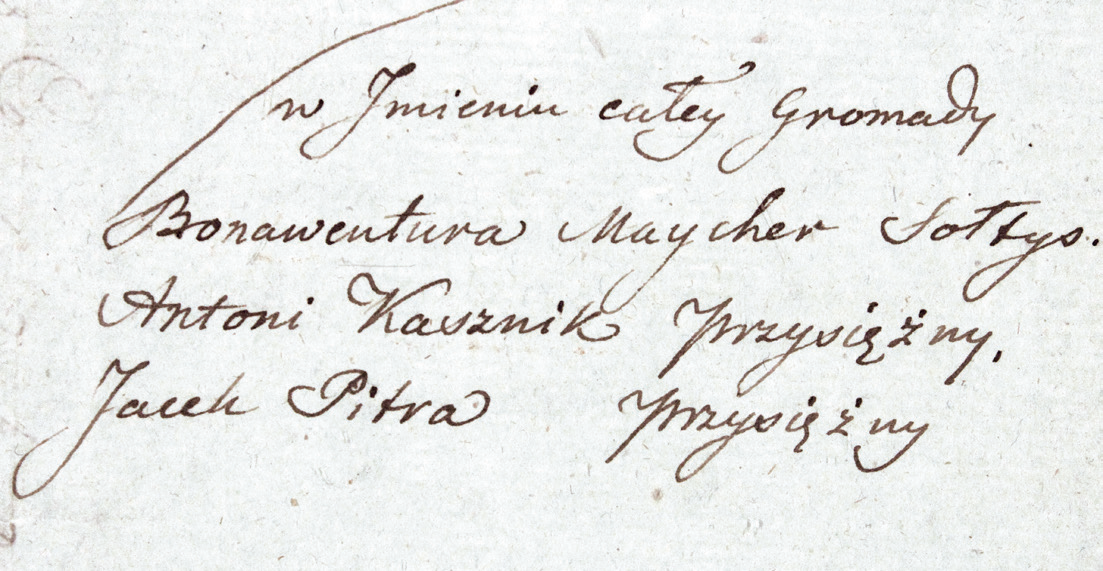 w Jmieniu całey Gromady
Bonawentura Maycher Sołtys.
Antoni Kasznik Przysiężny.
Jacek Pitra Przysiężny